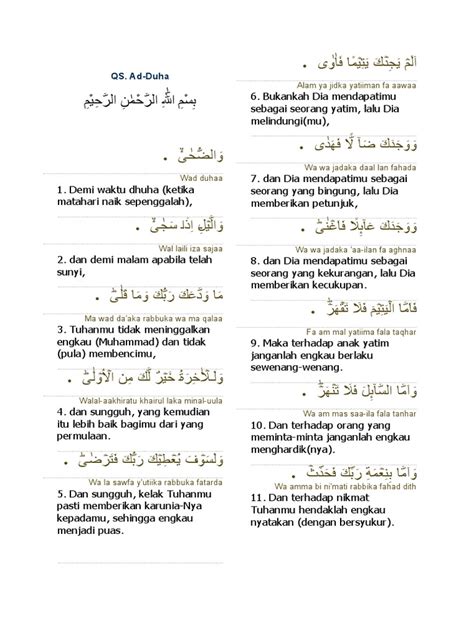 QS. Ad-Duha
بِسْمِ اللّٰهِ الرَّحْمٰنِ الرَّحِيْمِ
وَالضُّحٰىۙ
Wad duhaa
1. Demi waktu dhuha (ketika
matahari naik sepenggalah),
وَالَّيْلِ اِذَا سَجٰىۙ
Wal laili iza sajaa
2. dan demi malam apabila telah
sunyi,
مَا وَدَّعَكَ رَبُّكَ وَمَا قَلٰىۗ .
Ma wad da'aka rabbuka wa ma qalaa
3. Tuhanmu tidak meninggalkan
engkau (Muhammad) dan tidak
(pula) membencimu,
وَلَلْاٰخِرَةُ خَيْرٌ لَّكَ مِنَ الْاُوْلٰىۗ .
Walal-aakhiratu khairul laka minal-uula
4. dan sungguh, yang kemudian
itu lebih baik bagimu dari yang
permulaan.
وَلَسَوْفَ يُعْطِيْكَ رَبُّكَ فَتَرْضٰىۗ .
Wa la sawfa y'utiika rabbuka fatarda
5. Dan sungguh, kelak Tuhanmu
pasti memberikan karunia-Nya
kepadamu, sehingga engkau
menjadi puas.
اَلَمْ يَجِدْكَ يَتِيْمًا فَاٰوٰى .
Alam ya jidka yatiiman fa aawaa
6. Bukankah Dia mendapatimu
sebagai seorang yatim, lalu Dia
melindungi(mu),
وَوَجَدَكَ ضَاۤلًّا فَهَدٰى .
Wa wa jadaka daal lan fahada
7. dan Dia mendapatimu sebagai
seorang yang bingung, lalu Dia
memberikan petunjuk,
وَوَجَدَكَ عَاۤىِٕلًا فَاَغْنٰىۗ .
Wa wa jadaka 'aa-ilan fa aghnaa
8. dan Dia mendapatimu sebagai
seorang yang kekurangan, lalu Dia
memberikan kecukupan.
فَاَمَّا الْيَتِيْمَ فَلَا تَقْهَرْۗ .
Fa am mal yatiima fala taqhar
9. Maka terhadap anak yatim
janganlah engkau berlaku
sewenang-wenang.
وَاَمَّا السَّاۤىِٕلَ فَلَا تَنْهَرْۗ .
Wa am mas saa-ila fala tanhar
10. Dan terhadap orang yang
meminta-minta janganlah engkau
menghardik(nya).
وَاَمَّا بِنِعْمَةِ رَبِّكَ فَحَدِّثْ .
Wa amma bi ni'mati rabbika fahad dith
11. Dan terhadap nikmat
Tuhanmu hendaklah engkau
nyatakan (dengan bersyukur).